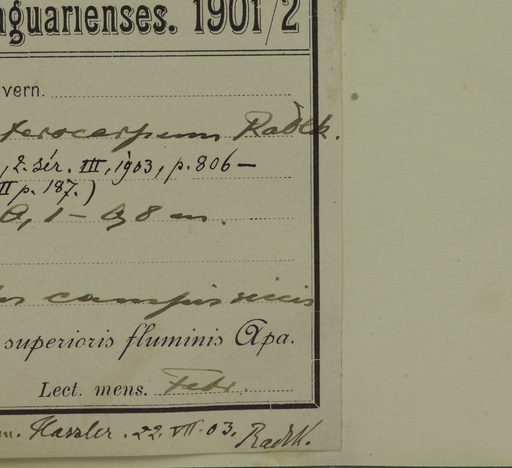 aguarienses. 1901/2
vern.
terocarpum Radlk.
, 2. sér. III, 1903, p. 806–
II p. 187.)
0,1 – 0,8 m.
campis
superioris fluminis Apa.
Lect. mens. Febr.
m. Hassler. 22. VII. 03. Radlk.